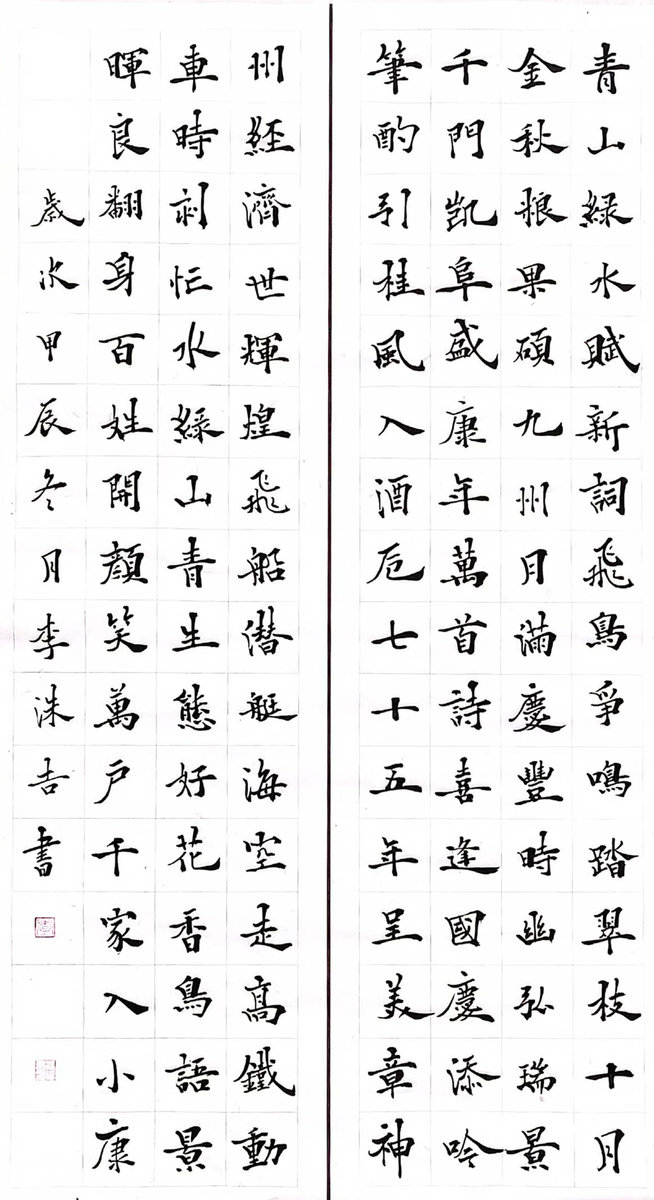 青山綠水賦新詞飛鳥爭鳴踏翠枝十月
金秋粮果碩九州月滿慶豐時幽弘瑞景
千門凱阜盛康年萬首詩喜逢國慶添吟
筆酌引桂風入酒卮七十五年呈美章神
州経濟世輝煌飛船潜艇海空走高鐵動
車時刻忙水綠山青生態好花香鳥語景
暉良翻身百姓開顏笑萬户千家入小康
歲次甲辰冬月李洙吉書